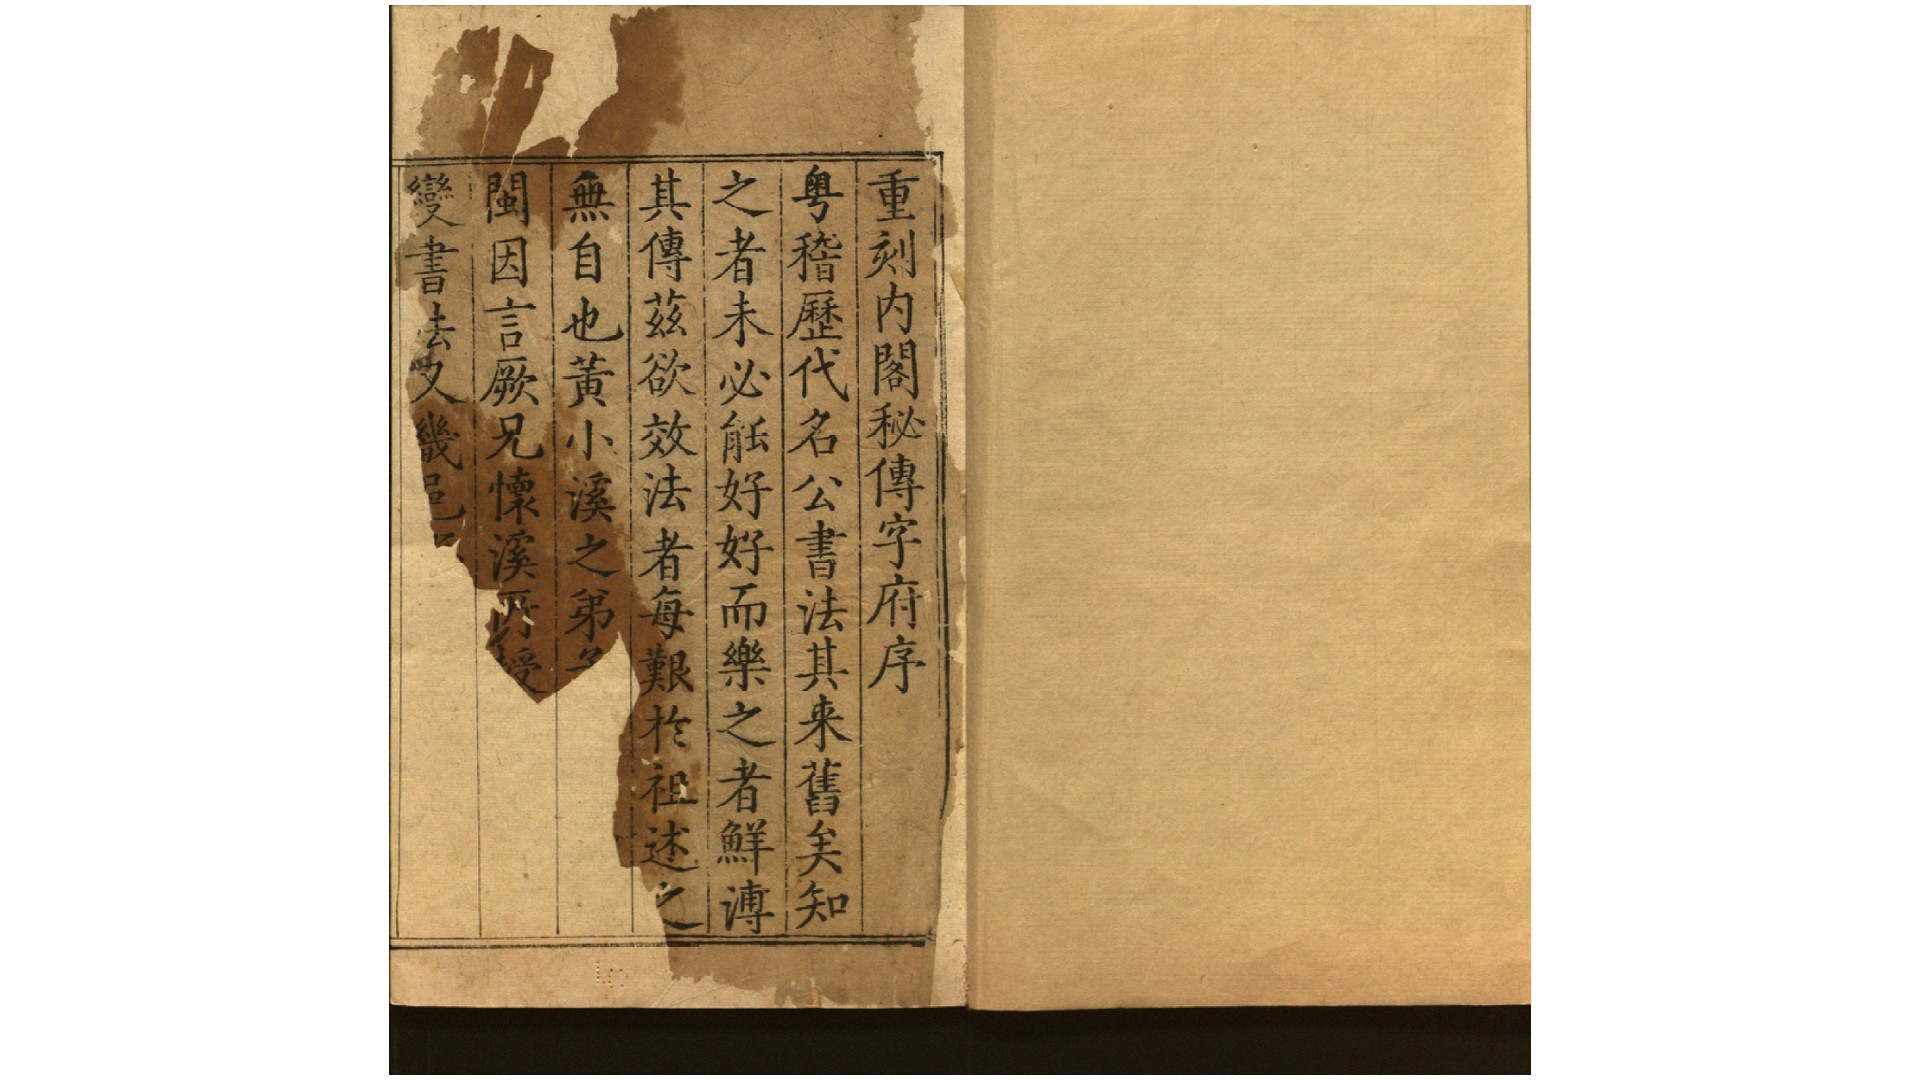 重刻内閣秘傳字府序
粤稽歷代名公書法其来舊矣知
之者未必能好好而樂之者鮮溥
其傳茲欲效法者每艱於祖述之
無自也黃小溪之弟
閩因言厥兄懷溪所授
變書法又幾邑